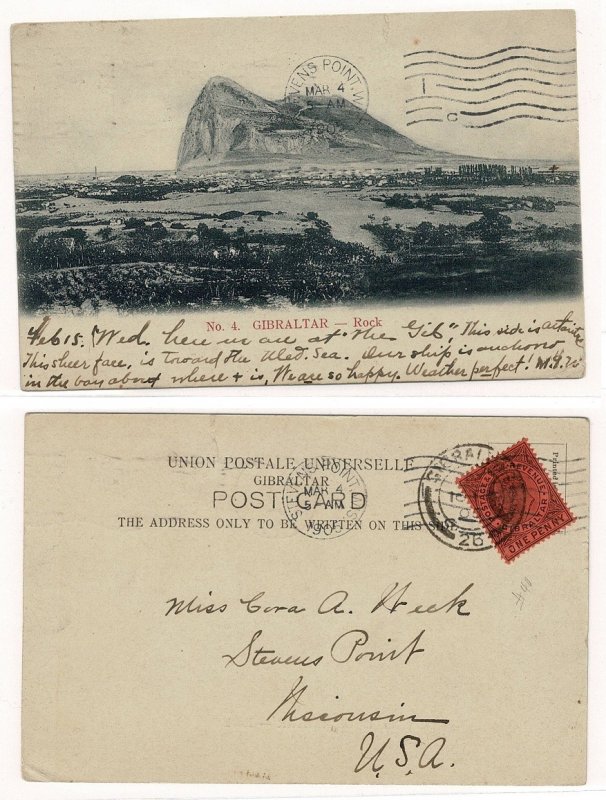 STEVENS POINT, W
MAR 4
5 AM
190
1
C
No. 4. GIBRALTAR — Rock
Feb 15. Wed. here we are at the "Gib", This side is
This sheer face, is toward the Med. Sea. Our ship is anchored
in the bay about where + is, We are so happy. Weather perfect!
UNION POSTALE UNIVERSELLE
GIBRALTAR
POST CARD
THE ADDRESS ONLY TO BE WRITTEN ON THIS SIDE
STEVENS POINT, WIS
MAR 4
5 AM
190
GIBRAL
26
POSTAGE & REVENUE
GIBRALTAR
ONE PENNY
Printed
Miss Cora A. Heck
Stevens Point
Wisconsin
U.S.A.